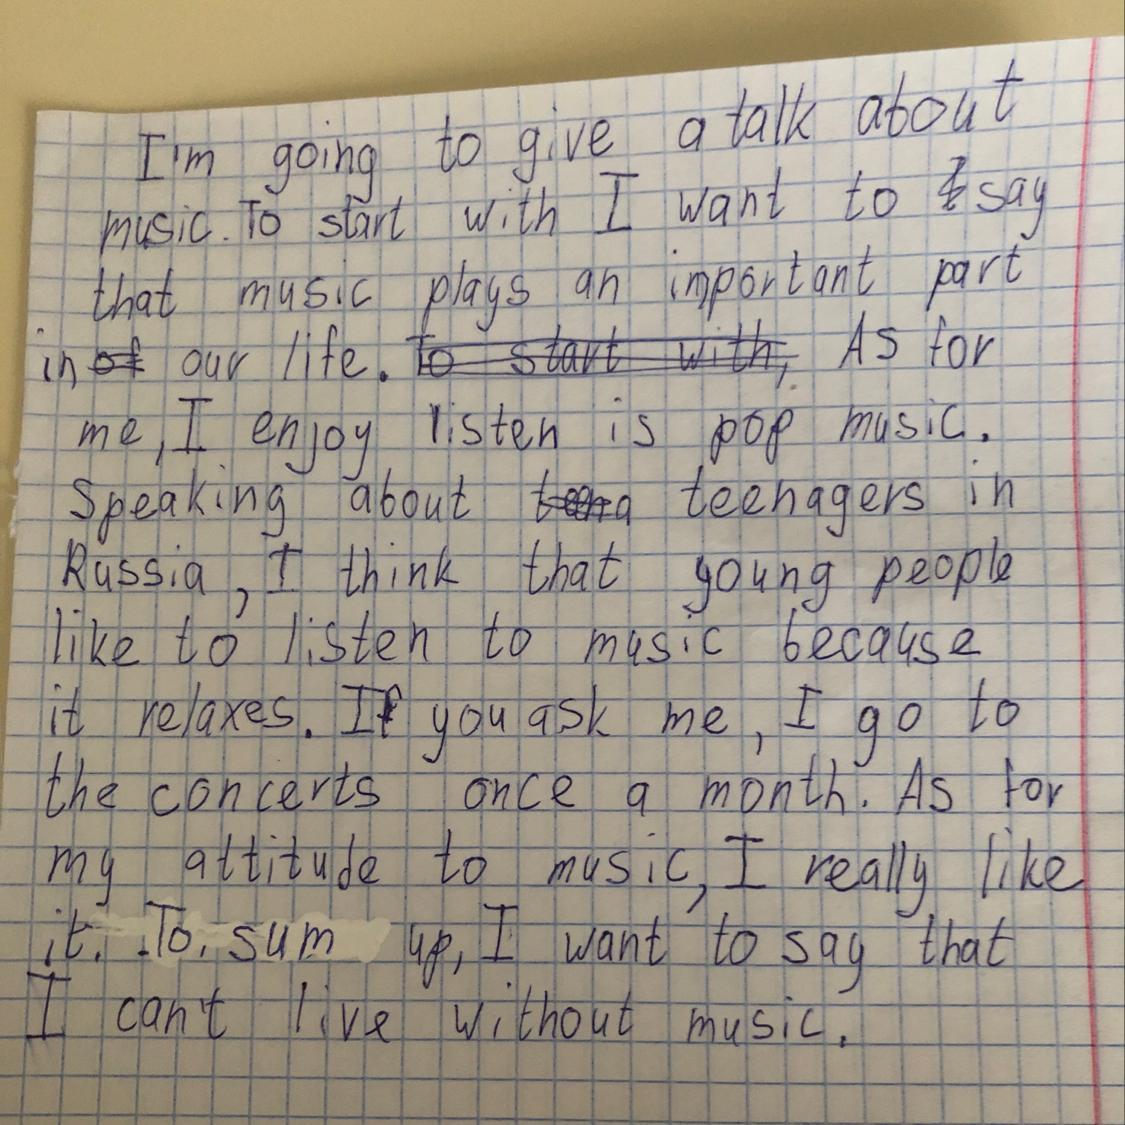 I'm going to give a talk about
music. To start with I want to say
that music plays an important part
in our life. To start with, As for
me, I enjoy listen is pop music.
Speaking about teenagers in
Russia, I think that young people
like to listen to music because
it relaxes. If you ask me, I go to
the concerts once a month. As for
my attitude to music, I really like
it. To sum up, I want to say that
I can't live without music.